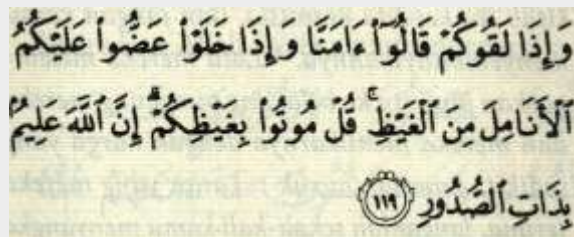 وَإِذَا لَقُوكُمْ قَالُوٓا۟ ءَامَنَّا وَإِذَا خَلَوْا۟ عَضُّوا۟ عَلَيْكُمُ
ٱلْأَنَامِلَ مِنَ ٱلْغَيْظِ ۚ قُلْ مُوتُوا۟ بِغَيْظِكُمْ ۗ إِنَّ ٱللَّهَ عَلِيمٌۢ
بِذَاتِ ٱلصُّدُورِ ۝١١٩